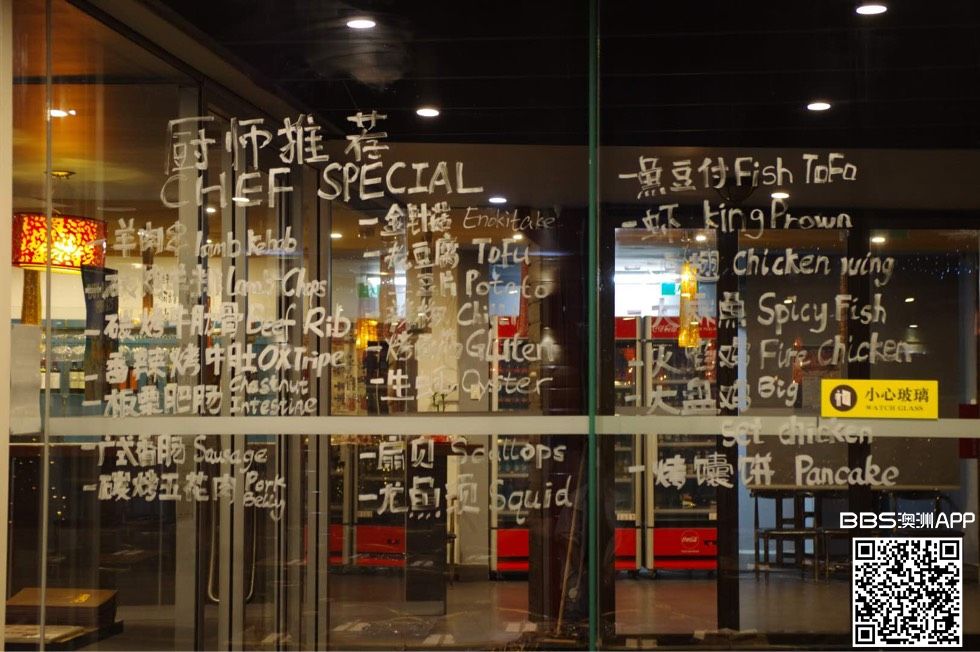 厨师推荐
CHEF SPECIAL
羊肉串 lamb kebab
Lamb Chops
碳烤牛肋骨 Beef Rib
香菜烤牛肚 OX Tripe
板栗肥肠 Chestnut
Intestine
广式香肠 Sausage
碳烤五花肉 Pork
Belly
金针菇 Enokitake
老豆腐 TOFU
土豆片 Potato
Gluten
生蚝 Oyster
扇贝 Scallops
尤鱼须 Squid
鱼豆付 Fish ToFo
虾 king Prown
Chicken wing
鱼 Spicy Fish
火 鸡 Fire Chicken
大盆鸡 Big
Set chicken
烤馕饼 Pancake
小心玻璃
WATCH GLASS
Coca-Cola
BBS澳洲APP